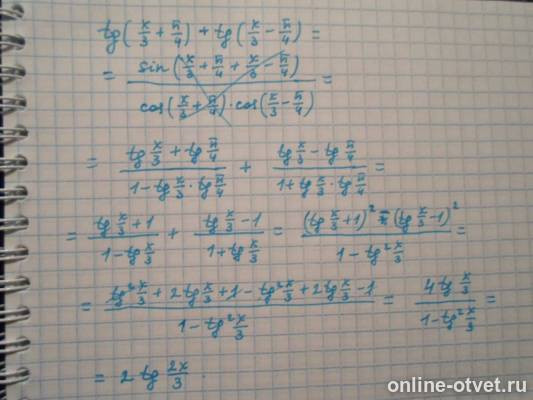 tg(x/3 + π/4) + tg(x/3 − π/4) =
= sin(x/3 + π/4 + x/3 − π/4) / cos(x/3 + π/4) · cos(x/3 − π/4) =
= (tg x/3 + tg π/4) / (1 − tg x/3 · tg π/4) + (tg x/3 − tg π/4) / (1 + tg x/3 · tg π/4) =
= (tg x/3 + 1) / (1 − tg x/3) + (tg x/3 − 1) / (1 + tg x/3) = ((tg x/3 + 1)² − (tg x/3 − 1)²) / (1 − tg² x/3) =
= (tg² x/3 + 2tg x/3 + 1 − tg² x/3 + 2tg x/3 − 1) / (1 − tg² x/3) = 4tg x/3 / (1 − tg² x/3) =
= 2 tg 2x/3 .
online-otvet.ru